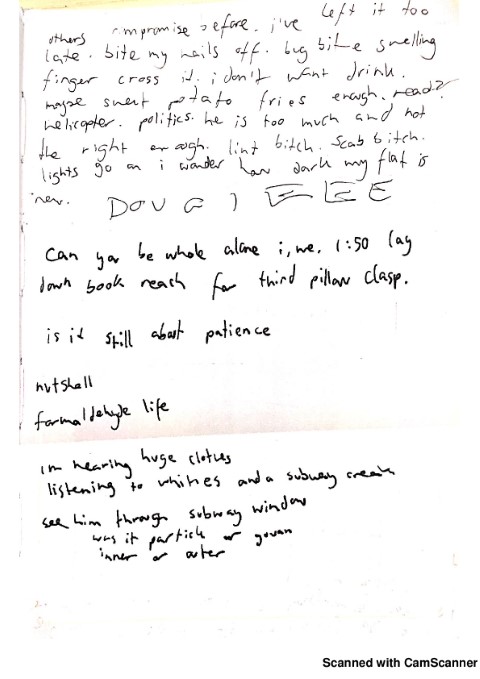 others compromise before. i've left it too
late. bite my nails off. bug bite swelling
finger cross it. i don't want drink.
maybe sweet potato fries enough. read?
helicopter. politics. he is too much and not
the right enough. lint bitch. scab bitch.
lights go on i wander how dark my flat is
new.
can you be whole alone i, we. 1:50 lay
down book reach for third pillow clasp.
is it still about patience
nutshell
formaldehyde life
im hearing huge clothes
listening to whines and a subway creak
see him through subway window
was it partick or govan
inner or outer
Scanned with CamScanner